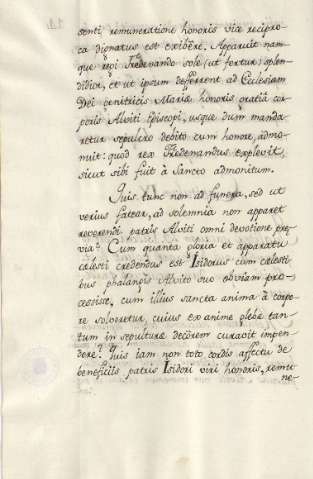 senti remuneratione honoris via recipro-
ca dignatus est exibere. Apparuit nam-
que regi Fredenando sole (ut fertur) splen-
didior, et ut ipsum deferrent ad Ecclesiam
Dei genitricis Mariæ honoris gratiâ cor-
poris Alviti Episcopi, usque dum manda-
retur sepulcro debito cum honore, admo-
nuit: quod rex Fredenandus explevit,
sicut sibi fuit à Sancto admonitum.
Quis tunc non ad funera, sed ut
verius fatear, ad solemnia non apparet
reverendi patris Alviti omni devotione pre-
via? Cum quanta gloria et apparatu
cælesti credendus est Isidorus cum cælesti-
bus phalangis Alvito suo obviam pro-
cessisse, cum illius sancta anima à corpo-
re solveretur, cuius exanime glebæ tan-
tum in sepulturæ decorem curavit impen-
dere? Quis iam non toto cordis affectu de
beneficiis patris Isidori viri honoris, remu-
ne-